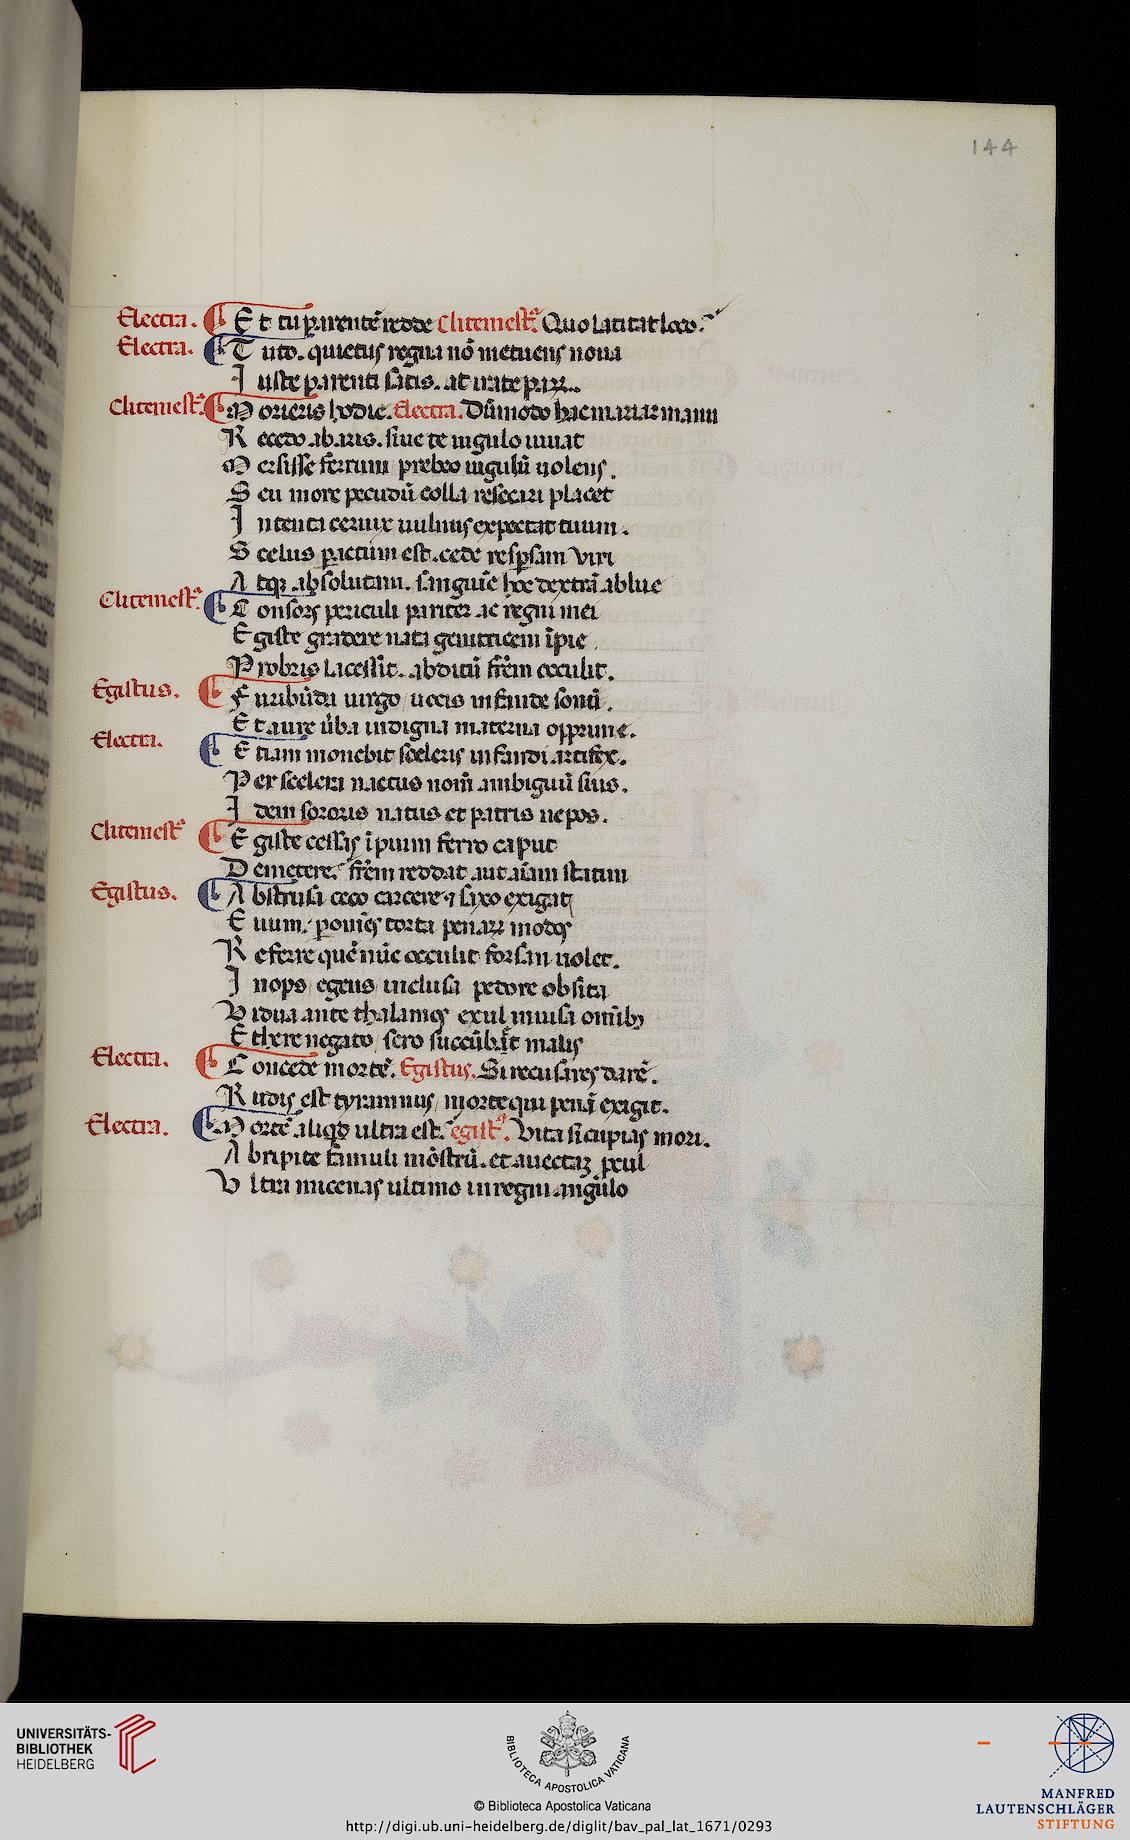 144
Electra. Et tu parentē redde Clitemest^a. Quo latitat loco.
Electra. Tuto. quietus regna nō metuens noua
Iuste parenti satis. at irate parū.
Clitemest^a. Morieris hodie. Electra. Dūmodo hac moriar manu
Recedo ab aris. siue te iugulo iuuat
Mersisse ferrum prebeo iugulū uolens.
Seu more pecudū colla resecari placet
Intenta ceruix uulnus expectat tuum.
Scelus pactum est. cede respsam viri
Atq; absolutam. sanguīe hoc dextrā ablue
Clitemest^a. Consors periculi pariter ac regni mei
Egiste gradere nata genitricem īpie.
Probris lacessit. abditū frēm occulit.
Egistus. Furibūda uirgo uocis infande sonū.
Et aure ūba indigna materna opprime.
Electra. Etiam monebit sceleris infandi artifex.
Per scelera nactus nom̄ ambiguū suis.
Idem sororis natus et patris nepos.
Clitemest^a Egiste cessas īpium ferro caput
Demetere. frēm reddat aut aīam statim
Egistus. Abstrusa ceco carcere ⁊ saxo exigat
Euum. p omēs torta penarū modos
Referre quē nūc occulit forsan uolet.
Inops egens inclusa pedore obsita
Vidua ante thalamos exul inuisa omībꝫ
Ethere negato sero succūbet malis
Electra. Concede mortē. Egistus. Si recusares darē.
Rudis est tyrannus morte qui penā exigit.
Electra. Mortē aliqd ultra est. egist^9. Vita si cupias mori.
Abripite famuli mōstrū. et auectaꝫ pcul
Vltra micenas ultimo in regni angulo
UNIVERSITÄTS-
BIBLIOTHEK
HEIDELBERG
BIBLIOTECA APOSTOLICA VATICANA
© Biblioteca Apostolica Vaticana
http://digi.ub.uni-heidelberg.de/diglit/bav_pal_lat_1671/0293
MANFRED
LAUTENSCHLÄGER
STIFTUNG